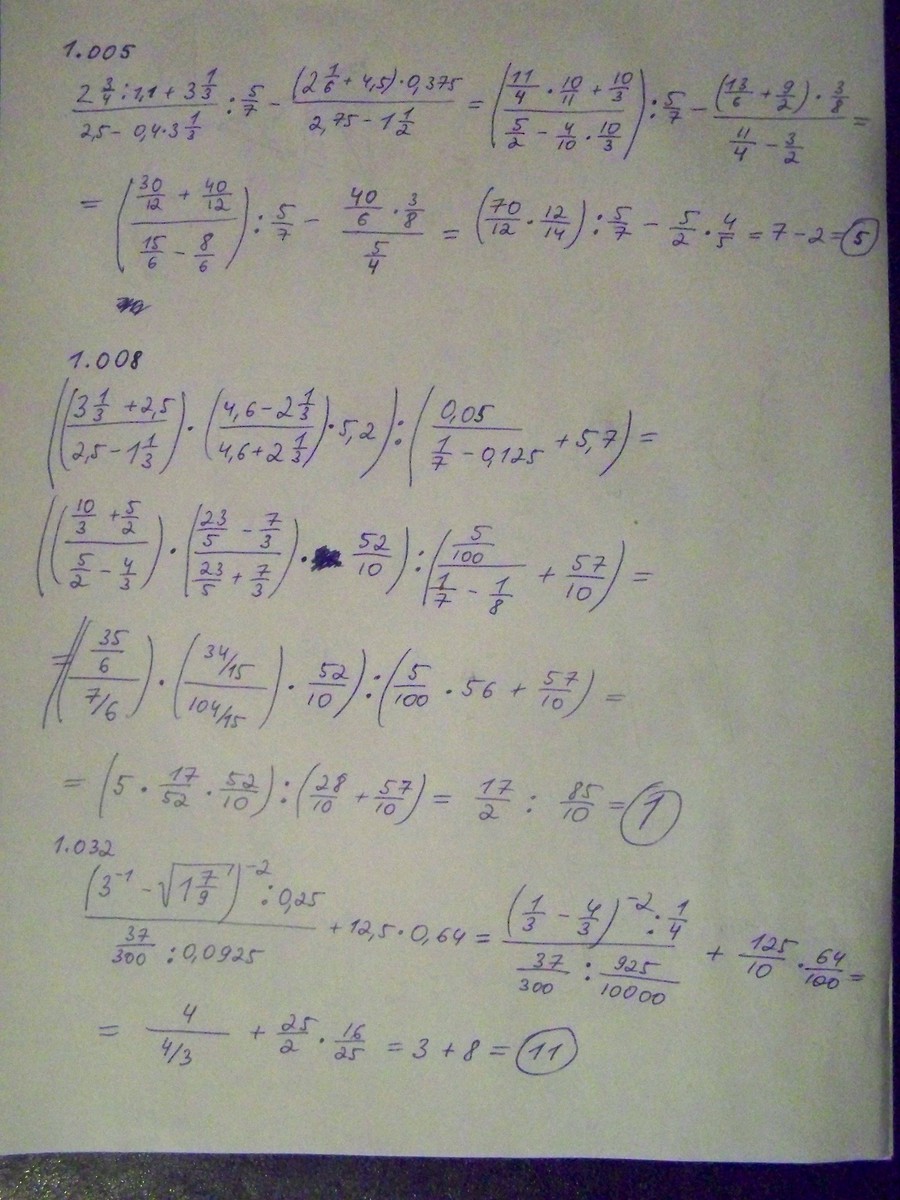 1.005
(2 3/4 : 1,1 + 3 1/3)/(2,5 - 0,4 · 3 1/3) : 5/7 - ((2 1/6 + 4,5) · 0,375)/(2,75 - 1 1/2) = ((11/4 · 10/11 + 10/3)/(5/2 - 4/10 · 10/3)) : 5/7 - ((13/6 + 9/2) · 3/8)/(11/4 - 3/2) =
= ((30/12 + 40/12)/(15/6 - 8/6)) : 5/7 - (40/6 · 3/8)/(5/4) = (70/12 · 12/14) : 5/7 - 5/2 · 4/5 = 7 - 2 = 5
1.008
(((3 1/3 + 2,5)/(2,5 - 1 1/3)) · ((4,6 - 2 1/3)/(4,6 + 2 1/3)) · 5,2) : (0,05/(1/7 - 0,125) + 5,7) =
(((10/3 + 5/2)/(5/2 - 4/3)) · ((23/5 - 7/3)/(23/5 + 7/3)) · 52/10) : ((5/100)/(1/7 - 1/8) + 57/10) =
= (((35/6)/(7/6)) · ((34/15)/(104/15)) · 52/10) : (5/100 · 56 + 57/10) =
= (5 · 17/52 · 52/10) : (28/10 + 57/10) = 17/2 : 85/10 = 1
1.032
((3^-1 - √(1 7/9))^-2 : 0,25)/(37/300 : 0,0925) + 12,5 · 0,64 = ((1/3 - 4/3)^-2 : 1/4)/(37/300 : 925/10000) + 125/10 · 64/100 =
= 4/(4/3) + 25/2 · 16/25 = 3 + 8 = 11